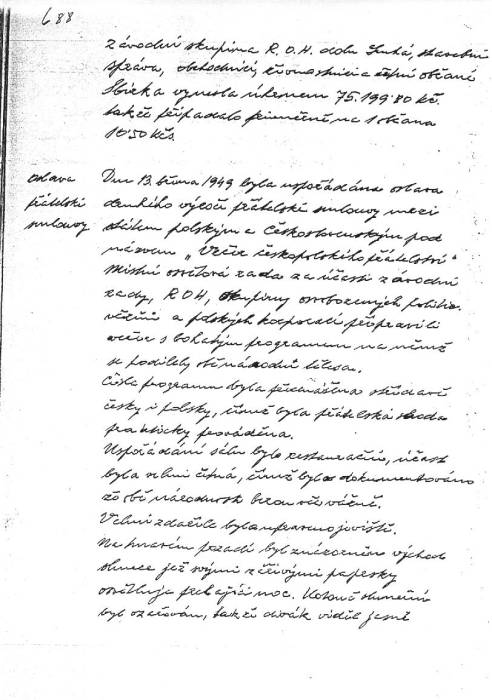 688
závodní skupina R.O.H. dolu Suchá, stavební
správa, obchodníci, živnostníci a ostatní občané
Sbírka vynesla úhrnem 75.199·80 Kč.
takže připadalo průměrně na 1 občana
10·50 Kčs.
oslava
přátelské
smlouvy
Dne 13. března 1949 byla uspořádána oslava
druhého výročí přátelské smlouvy mezi
státem polským a Československým pod
názvem „Večer českopolského přátelství"
Místní osvětová rada za účasti závodní
rady, ROH, skupiny osvobozených politic.
vězňů a polských korporací připravili
večer s bohatým programem na němž
se podílely obě národní tělesa.
Čísla programu byla přednášena střídavě
česky i polsky, čímž byla přátelská shoda
prakticky prováděna.
Uspořádání sálu bylo restaurační, účast
byla velmi četná, čímž bylo dokumentováno
že obě národnosti berou věc vážně.
Velmi zdařile bylo upraveno jeviště.
Na tmavém pozadí byl znázorněn východ
slunce jež svými zářivými paprsky
osvětluje prchající noc. Kotouč sluneční
byl ozařován, takže divák viděl jasně